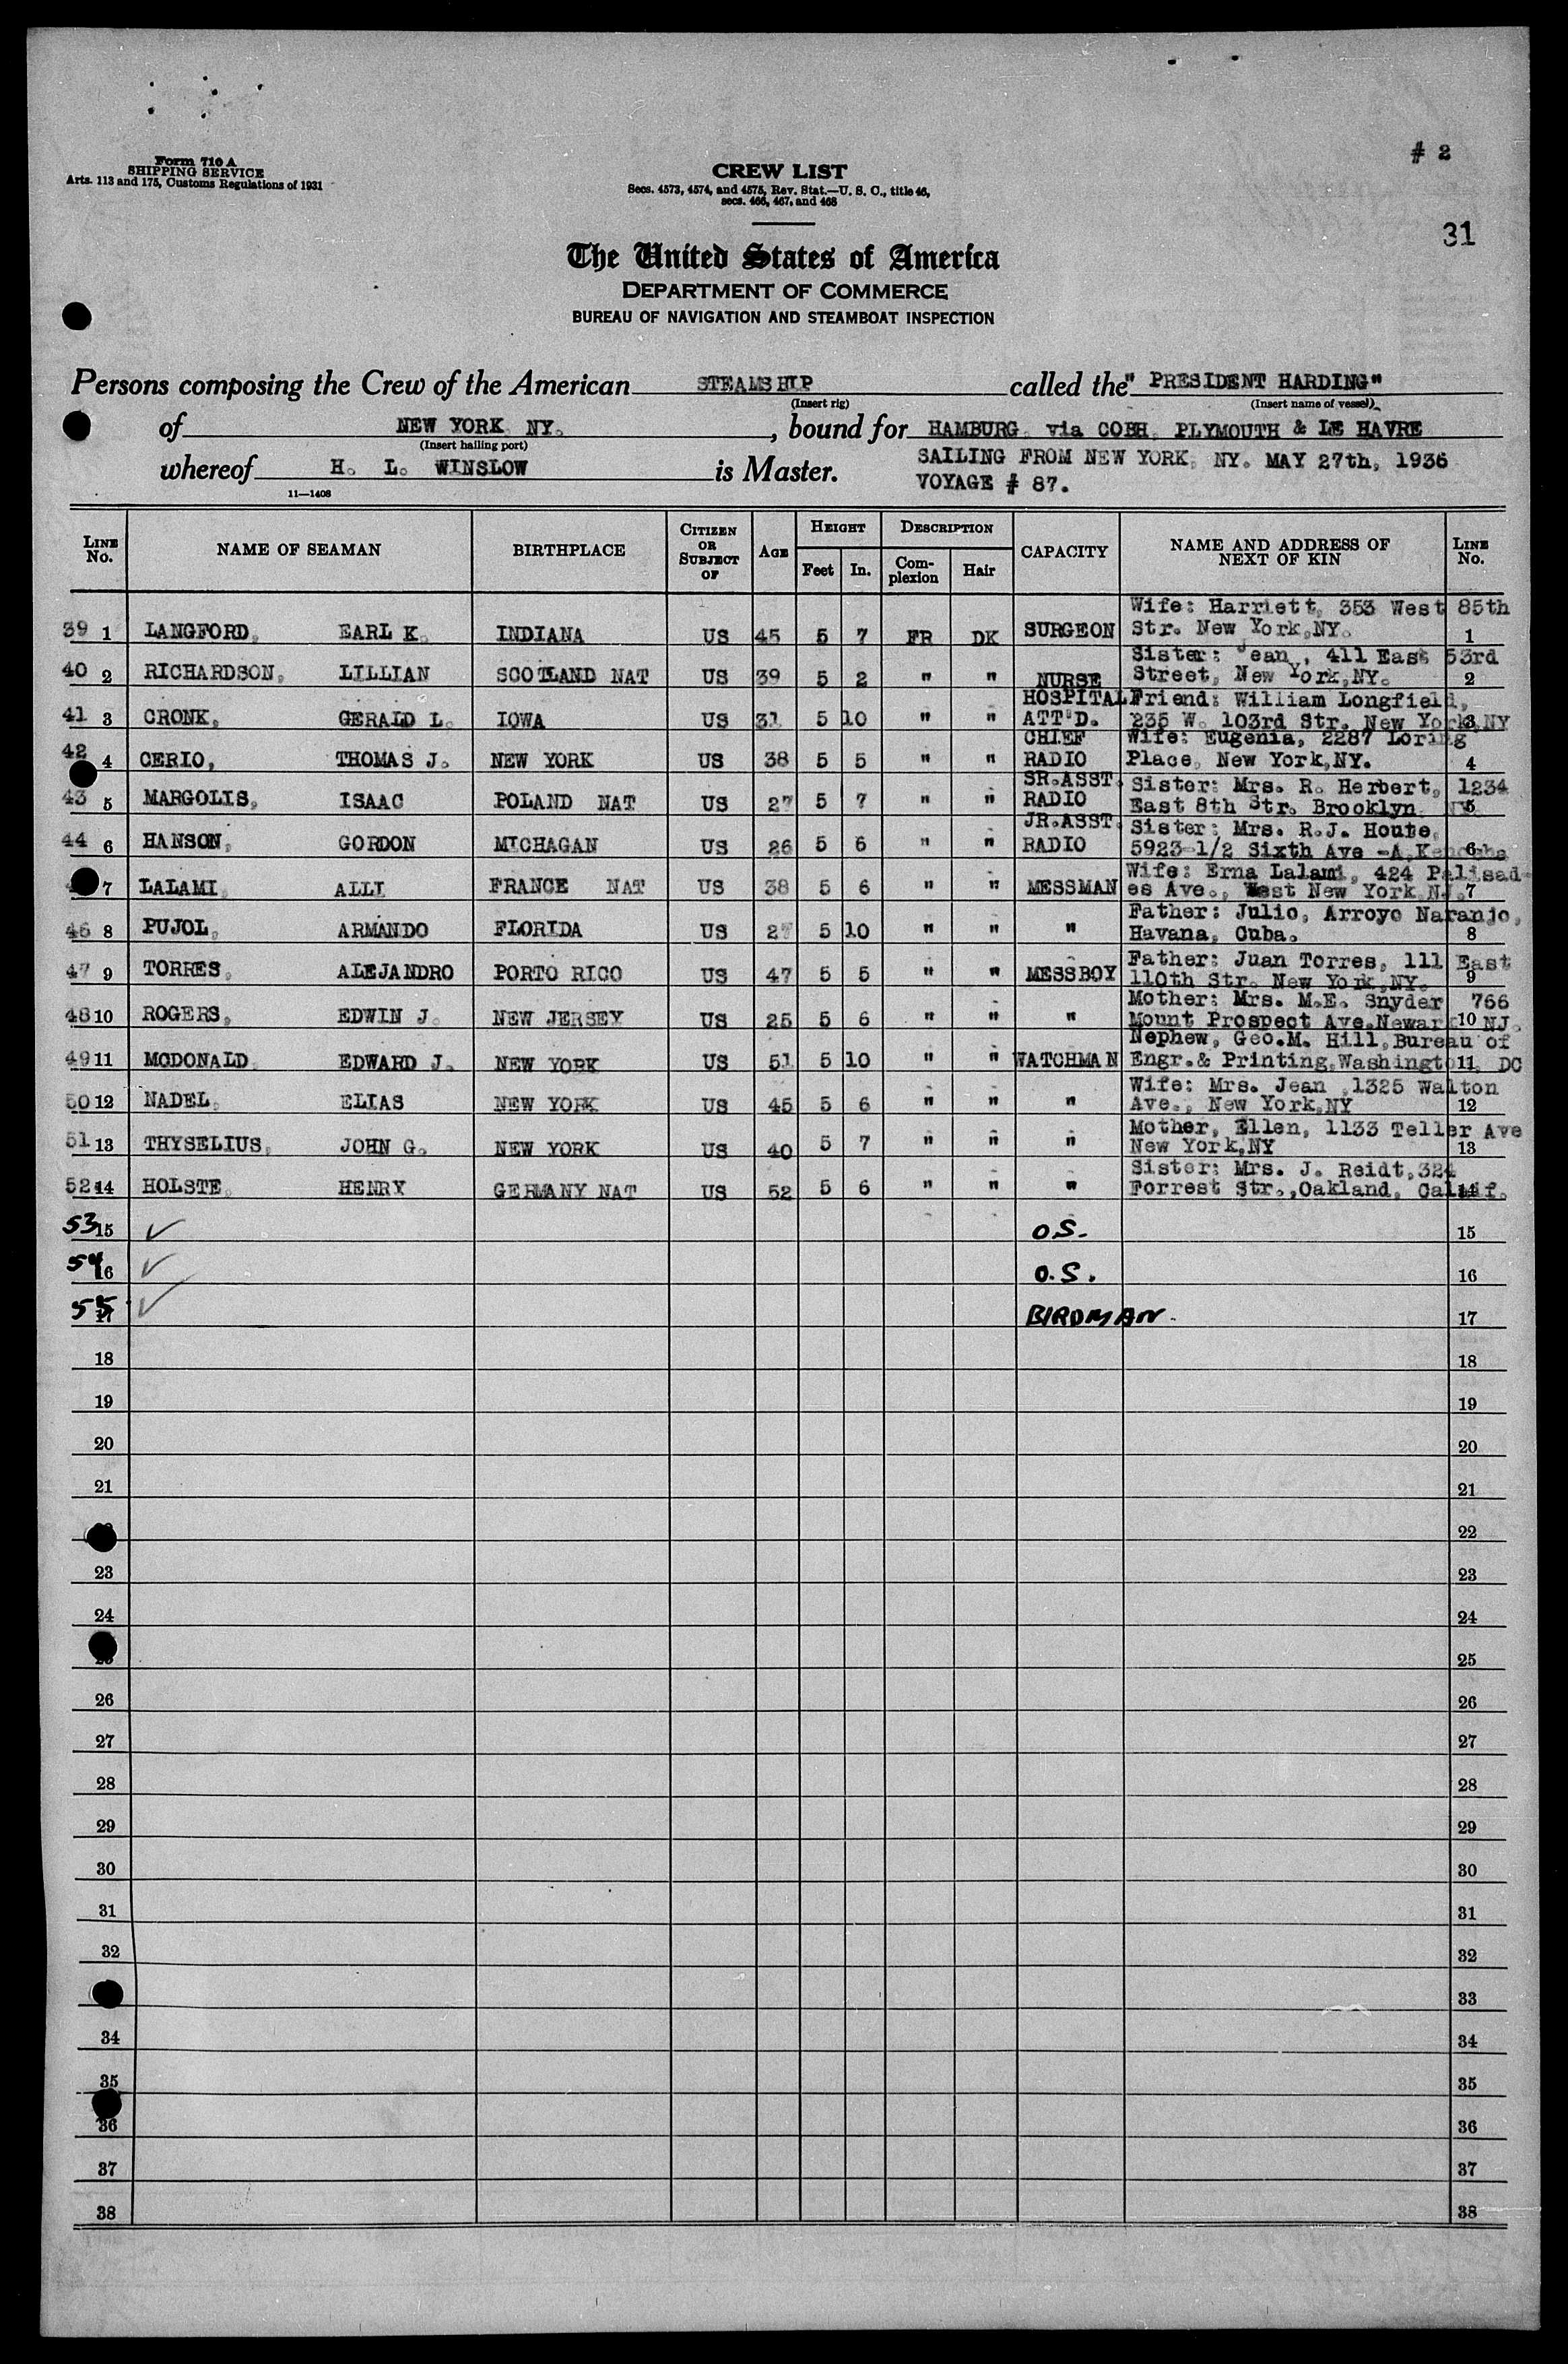 Form 710 A
SHIPPING SERVICE
Arts. 113 and 175, Customs Regulations of 1931
# 2
CREW LIST
Secs. 4573, 4574, and 4575, Rev. Stat.—U. S. C., title 46,
secs. 466, 467, and 468
31
The United States of America
DEPARTMENT OF COMMERCE
BUREAU OF NAVIGATION AND STEAMBOAT INSPECTION
Persons composing the Crew of the American STEAMSHIP called the "PRESIDENT HARDING"
(Insert rig) (Insert name of vessel)
of NEW YORK, NY. , bound for HAMBURG, via COBH, PLYMOUTH & LE HAVRE
(Insert hailing port)
whereof H. L. WINSLOW is Master. SAILING FROM NEW YORK, NY. MAY 27th, 1936
11—1408 VOYAGE # 87.
LINE No. NAME OF SEAMAN BIRTHPLACE CITIZEN OR SUBJECT OF AGE HEIGHT Feet In. DESCRIPTION Complexion Hair CAPACITY NAME AND ADDRESS OF NEXT OF KIN LINE No.
39 1 LANGFORD, EARL K. INDIANA US 45 5 7 FR DK SURGEON Wife: Harriett, 353 West 85th Str. New York,NY. 1
40 2 RICHARDSON, LILLIAN SCOTLAND NAT US 39 5 2 " " NURSE Sister: Jean, 411 East 53rd Street, New York,NY. 2
41 3 CRONK, GERALD L. IOWA US 31 5 10 " " HOSPITAL ATT'D. Friend: William Longfield, 235 W. 103rd Str. New York,NY 3
42 4 CERIO, THOMAS J. NEW YORK US 38 5 5 " " CHIEF RADIO Wife: Eugenia, 2287 Loring Place, New York,NY. 4
43 5 MARGOLIS, ISAAC POLAND NAT US 27 5 7 " " SR.ASST. RADIO Sister: Mrs. R. Herbert, 1234 East 8th Str. Brooklyn 5
44 6 HANSON, GORDON MICHAGAN US 26 5 6 " " JR.ASST. RADIO Sister: Mrs. R.J. Houte, 5923-1/2 Sixth Ave -A, 6
7 LALAMI, ALLI FRANCE NAT US 38 5 6 " " MESSMAN Wife: Erna Lalami, 424 Palisades Ave., West New York,NJ. 7
46 8 PUJOL, ARMANDO FLORIDA US 27 5 10 " " " Father: Julio, Arroyo Naranjo, Havana, Cuba. 8
47 9 TORRES, ALEJANDRO PORTO RICO US 47 5 5 " " MESSBOY Father: Juan Torres, 111 East 110th Str. New York,NY. 9
48 10 ROGERS, EDWIN J. NEW JERSEY US 25 5 6 " " " Mother: Mrs. M.E. Snyder 766 Mount Prospect Ave.Newark NJ. 10
49 11 MCDONALD, EDWARD J. NEW YORK US 51 5 10 " " WATCHMAN Nephew, Geo.M. Hill,Bureau of Engr.& Printing,Washington, DC 11
50 12 NADEL, ELIAS NEW YORK US 45 5 6 " " " Wife: Mrs. Jean ,1325 Walton Ave., New York,NY 12
51 13 THYSELIUS, JOHN G. NEW YORK US 40 5 7 " " " Mother, Ellen, 1133 Teller Ave New York,NY 13
52 14 HOLSTE, HENRY GERMANY NAT US 52 5 6 " " " Sister: Mrs. J. Reidt,324 Forrest Str.,Oakland, Calif. 14
53 15 ✓ O.S. 15
54 16 ✓ O.S. 16
55 17 ✓ BIRDMAN. 17
18 18
19 19
20 20
21 21
22
23 23
24 24
25 25
26 26
27 27
28 28
29 29
30 30
31 31
32 32
33
34 34
35 35
36 36
37 37
38 38